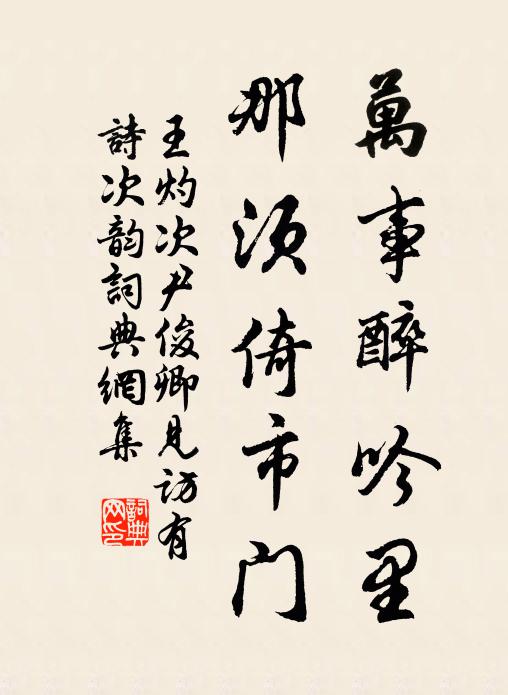 萬事醉吟里
那須倚市门
王灼次尹俊卿見访有
詩次韵詞典網集
詞典
网印